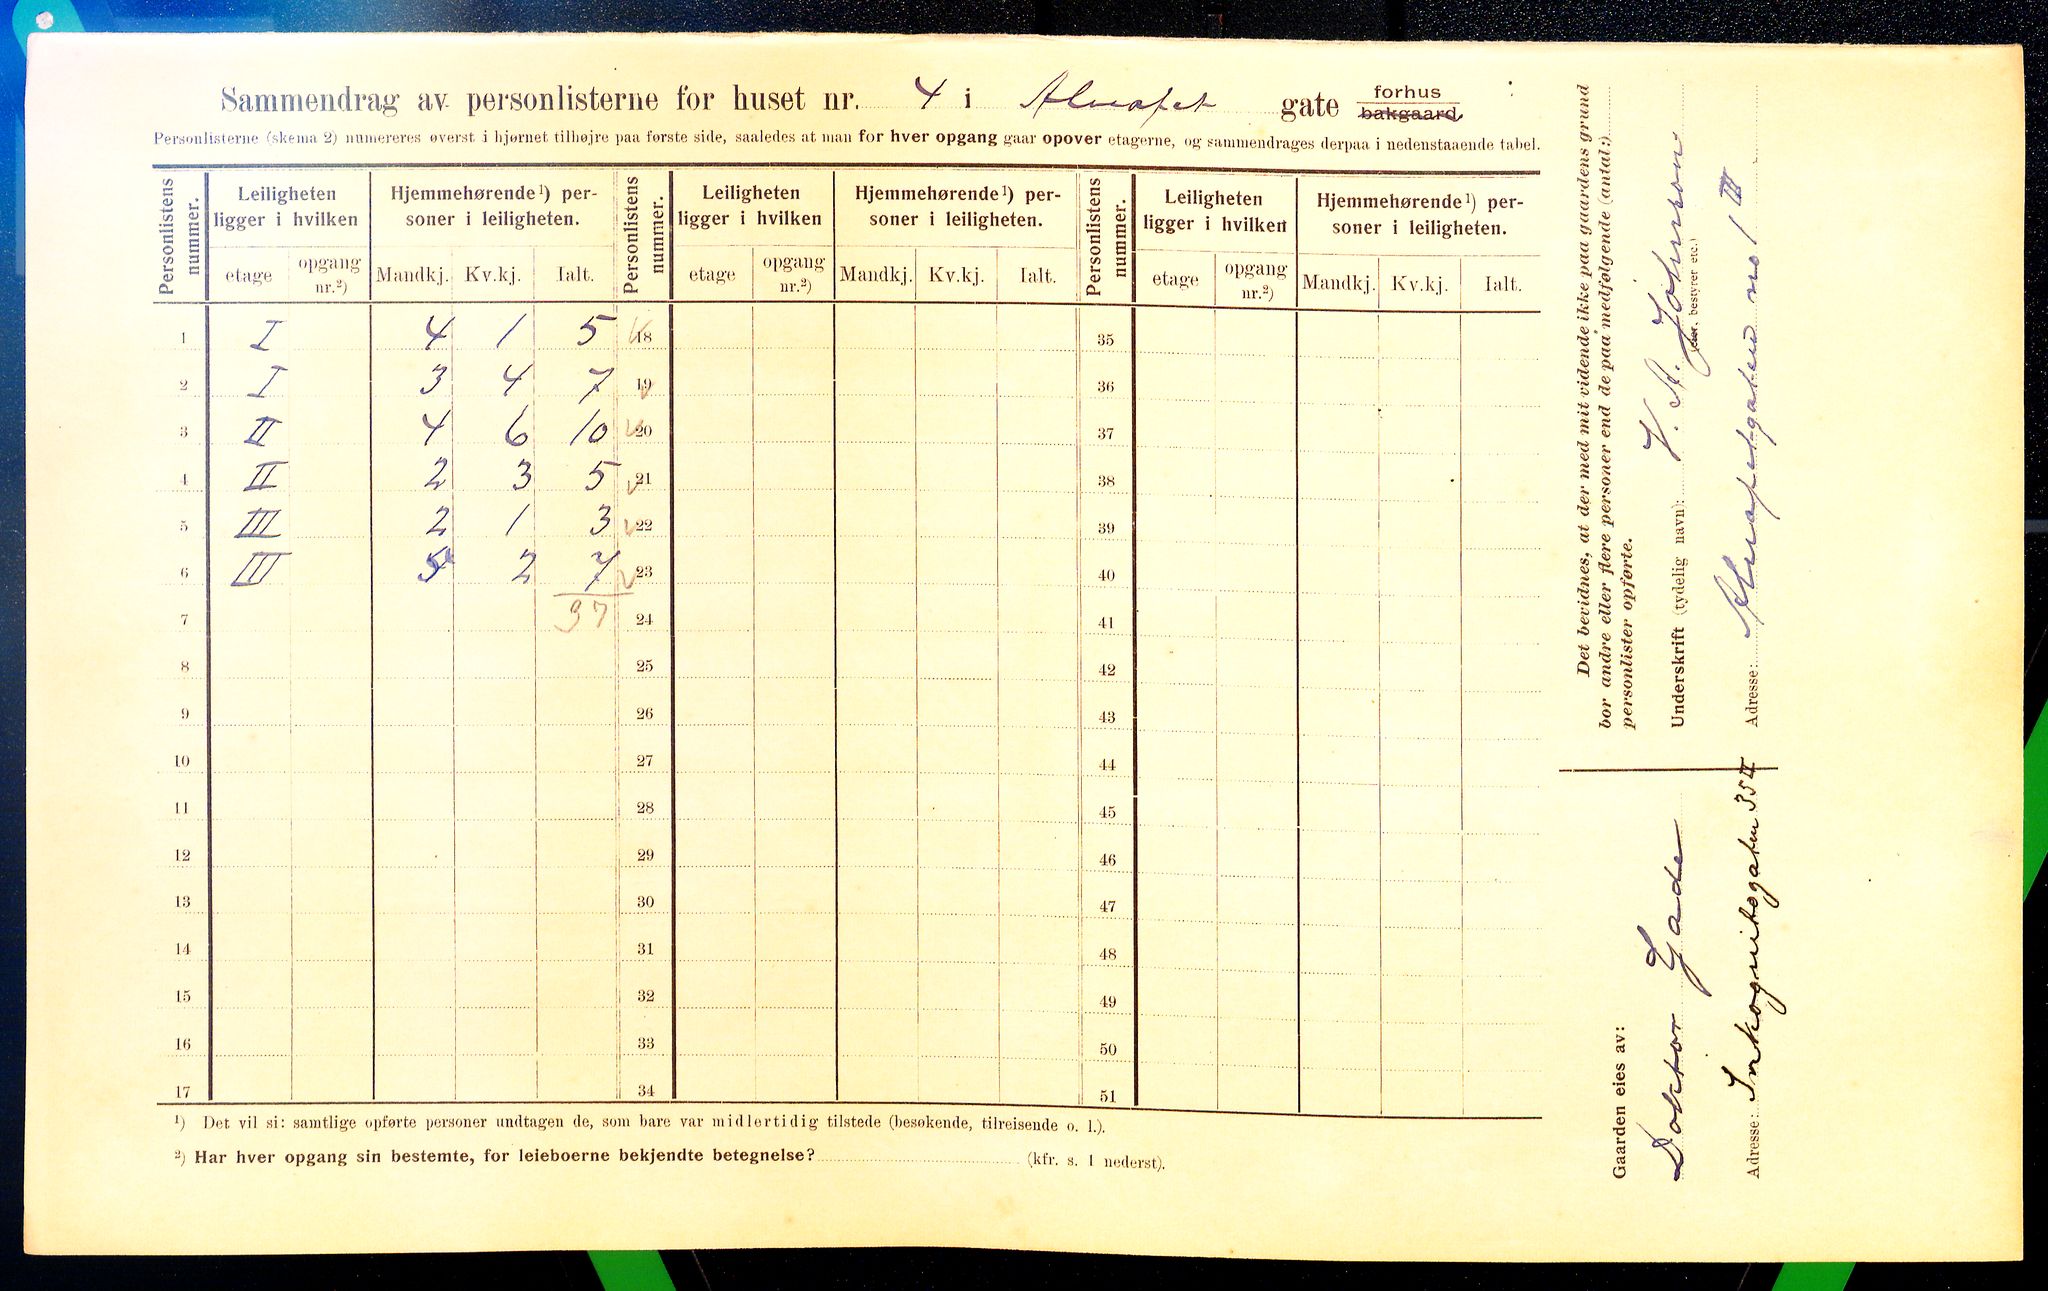 Sammendrag av personlisterne for huset nr. 4 i Akersgt gate forhus bakgaard
Personlisterne (skema 2) numereres øverst i hjørnet tilhøjre paa første side, saaledes at man for hver opgang gaar opover etagerne, og sammendrages derpaa i nedenstaaende tabel.
Personlistens nummer. Leiligheten ligger i hvilken Hjemmehørende¹) personer i leiligheten. Personlistens nummer. Leiligheten ligger i hvilken Hjemmehørende¹) personer i leiligheten. Personlistens nummer. Leiligheten ligger i hvilken Hjemmehørende¹) personer i leiligheten.
etage opgang nr.²) Mandkj. Kv.kj. Ialt. etage opgang nr.²) Mandkj. Kv.kj. Ialt. etage opgang nr.²) Mandkj. Kv.kj. Ialt.
1 I 4 1 5 18 35
2 I 3 4 7 19 36
3 II 4 6 10 20 37
4 II 2 3 5 21 38
5 III 2 1 3 22 39
6 III 5 2 7 23 40
7 37 24 41
8 25 42
9 26 43
10 27 44
11 28 45
12 29 46
13 30 47
14 31 48
15 32 49
16 33 50
17 34 51
¹) Det vil si: samtlige opførte personer undtagen de, som bare var midlertidig tilstede (besøkende, tilreisende o. l.).
²) Har hver opgang sin bestemte, for leieboerne bekjendte betegnelse? (kfr. s. 1 nederst).
Det bevidnes, at der med mit vidende ikke paa gaardens grund
bor andre eller flere personer end de paa medfølgende (antal:)
personlister opførte.
Underskrift (tydelig navn): V. A. Johnson
(eier, bestyrer etc.)
Adresse: no 1 III
Gaarden eies av:
Doktor Gade
Adresse: Inkognitogaten 35 II